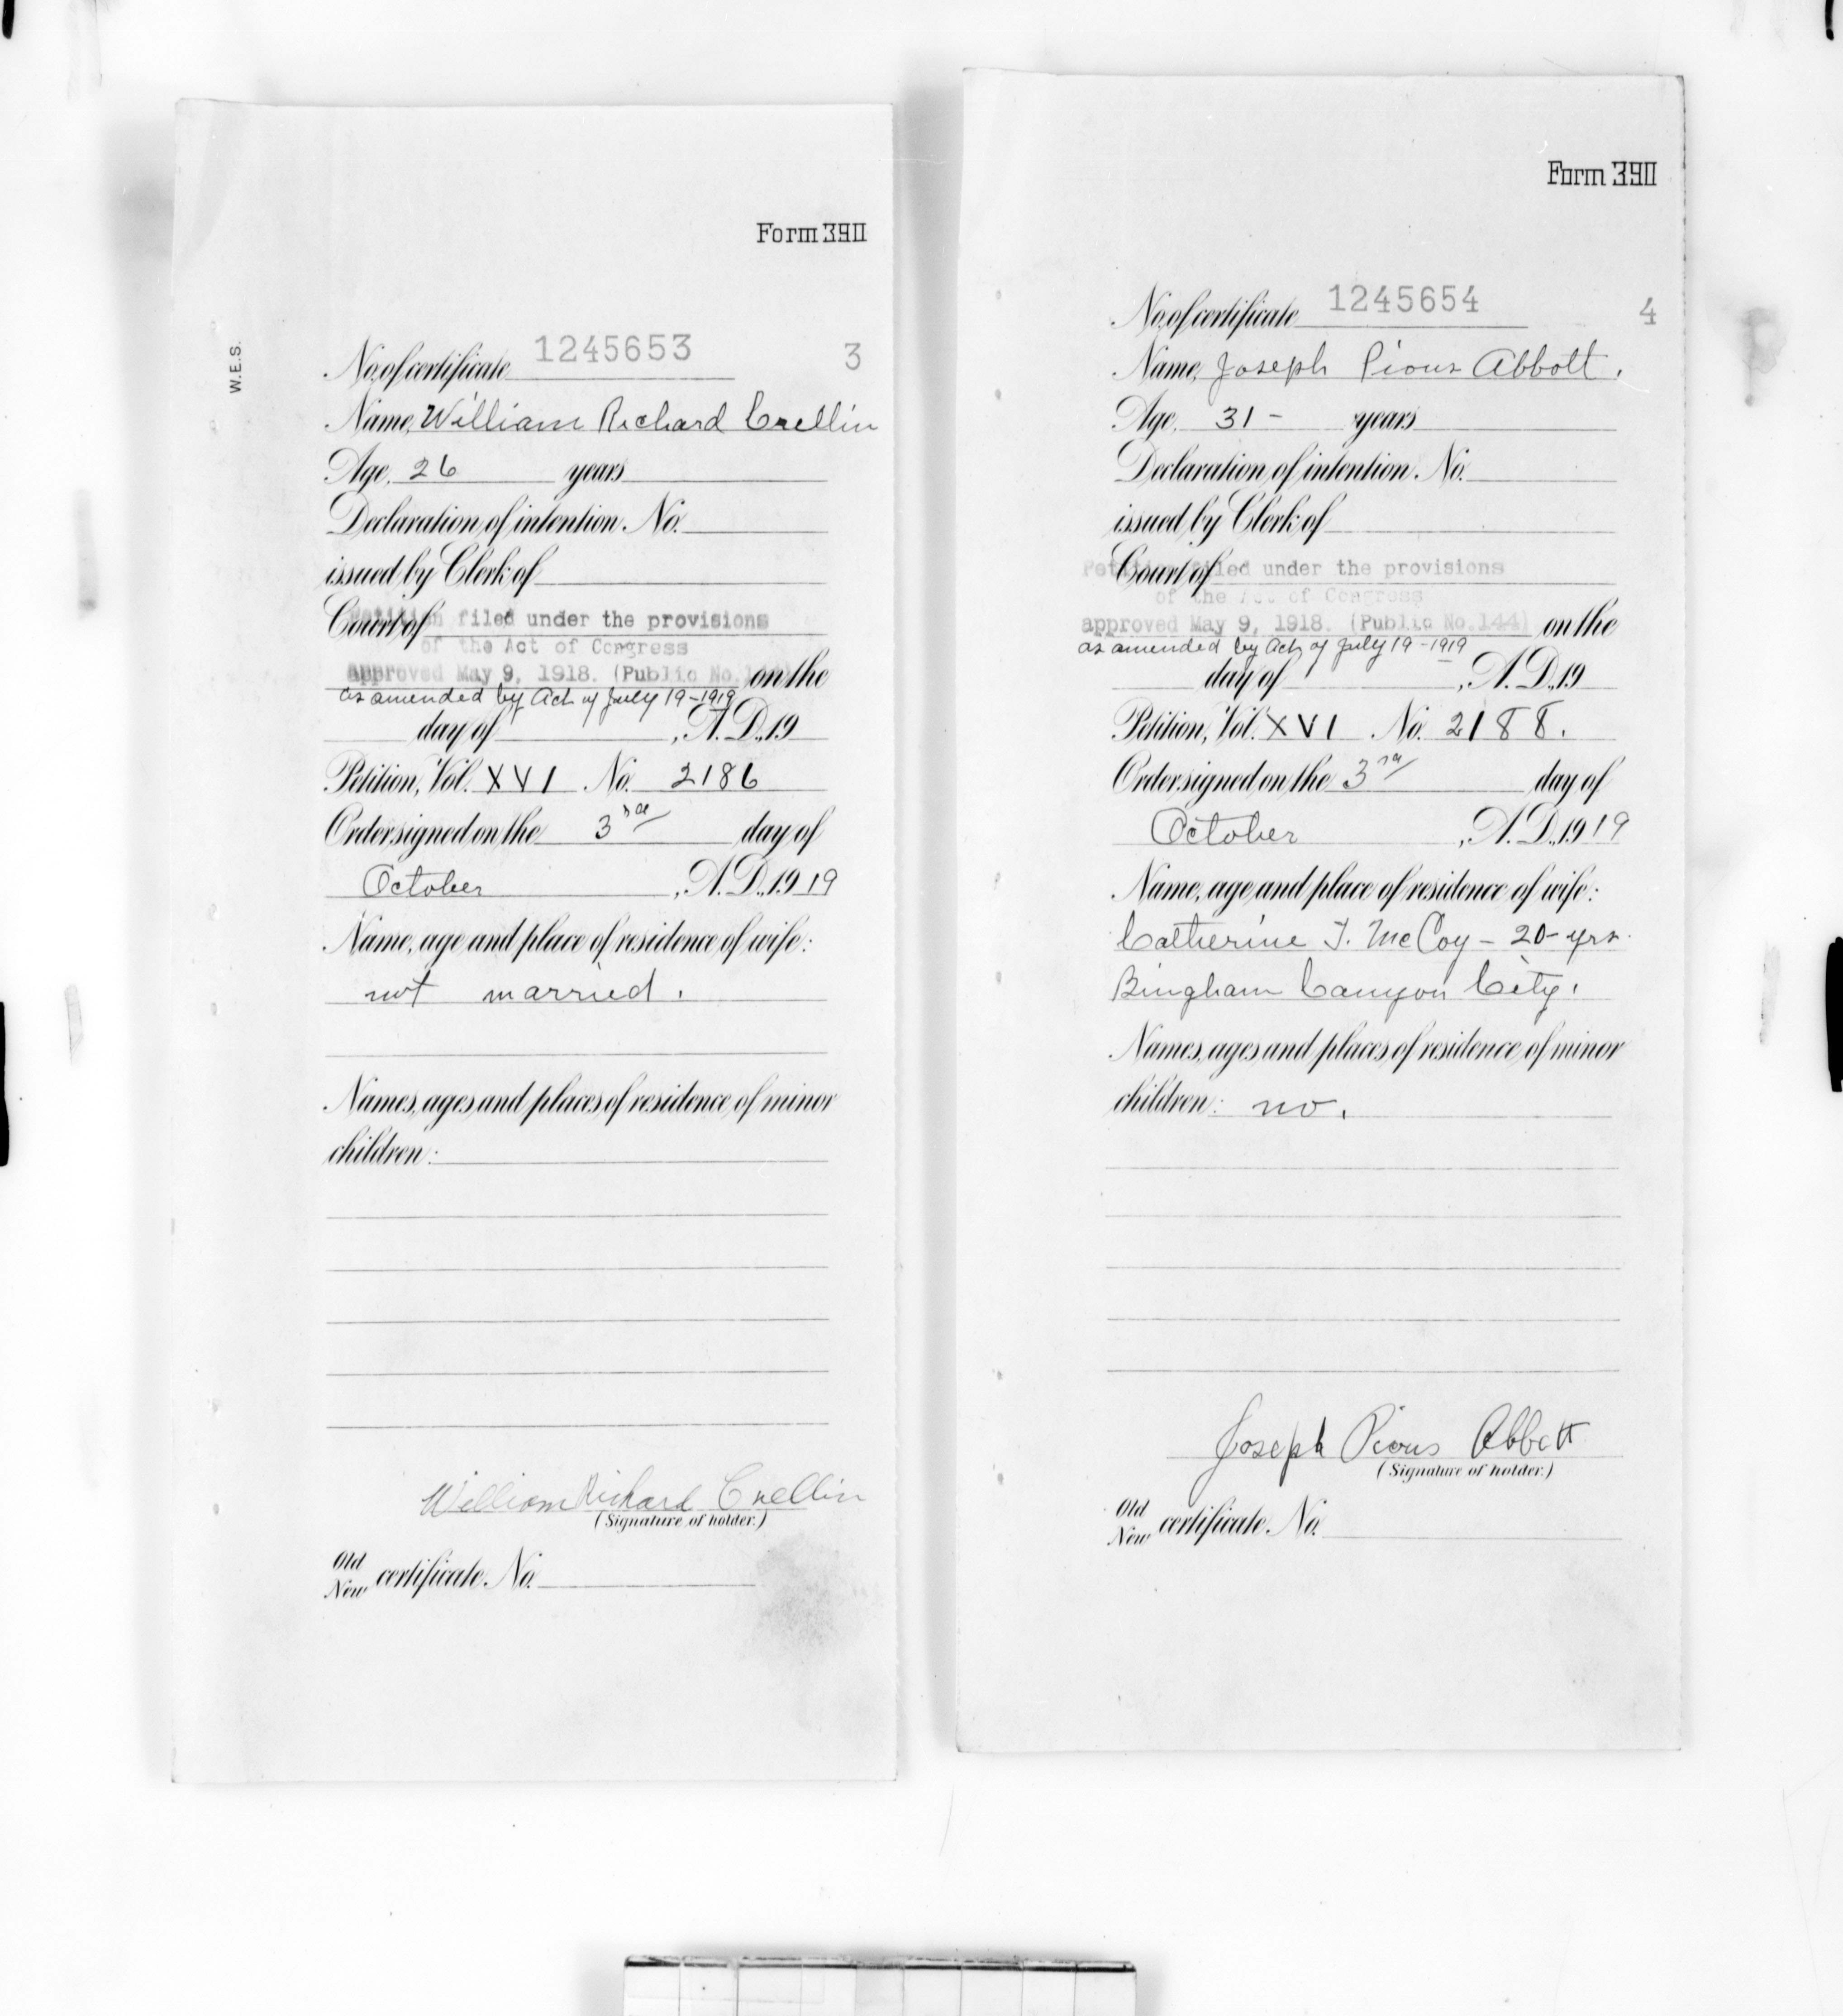 Form 390
W.E.S.
No. of certificate 1245653 3
Name, William Richard Crellin
Age, 26 years
Declaration of intention No.
issued by Clerk of
Court of
Petition filed under the provisions
of the Act of Congress
approved May 9, 1918. (Public No. 144) on the
as amended by Act of July 19-1919
day of , A.D., 19
Petition, Vol. XVI No. 2186
Order signed on the 3rd day of
October , A.D., 19 19
Name, age and place of residence of wife:
not married.
Names, ages and places of residence of minor
children:
William Richard Crellin
(Signature of holder.)
Old
New certificate No.
Form 390
No. of certificate 1245654 4
Name, Joseph Pious Abbott.
Age, 31- years
Declaration of intention No.
issued by Clerk of
Court of
Petition filed under the provisions
of the Act of Congress
approved May 9, 1918. (Public No. 144) on the
as amended by Act of July 19-1919
day of , A.D., 19
Petition, Vol. XVI No. 2188.
Order signed on the 3rd day of
October , A.D., 19 19
Name, age and place of residence of wife:
Catherine T. McCoy - 20- yrs.
Bingham Canyon City.
Names, ages and places of residence of minor
children: no.
Joseph Pious Abbott
(Signature of holder.)
Old
New certificate No.